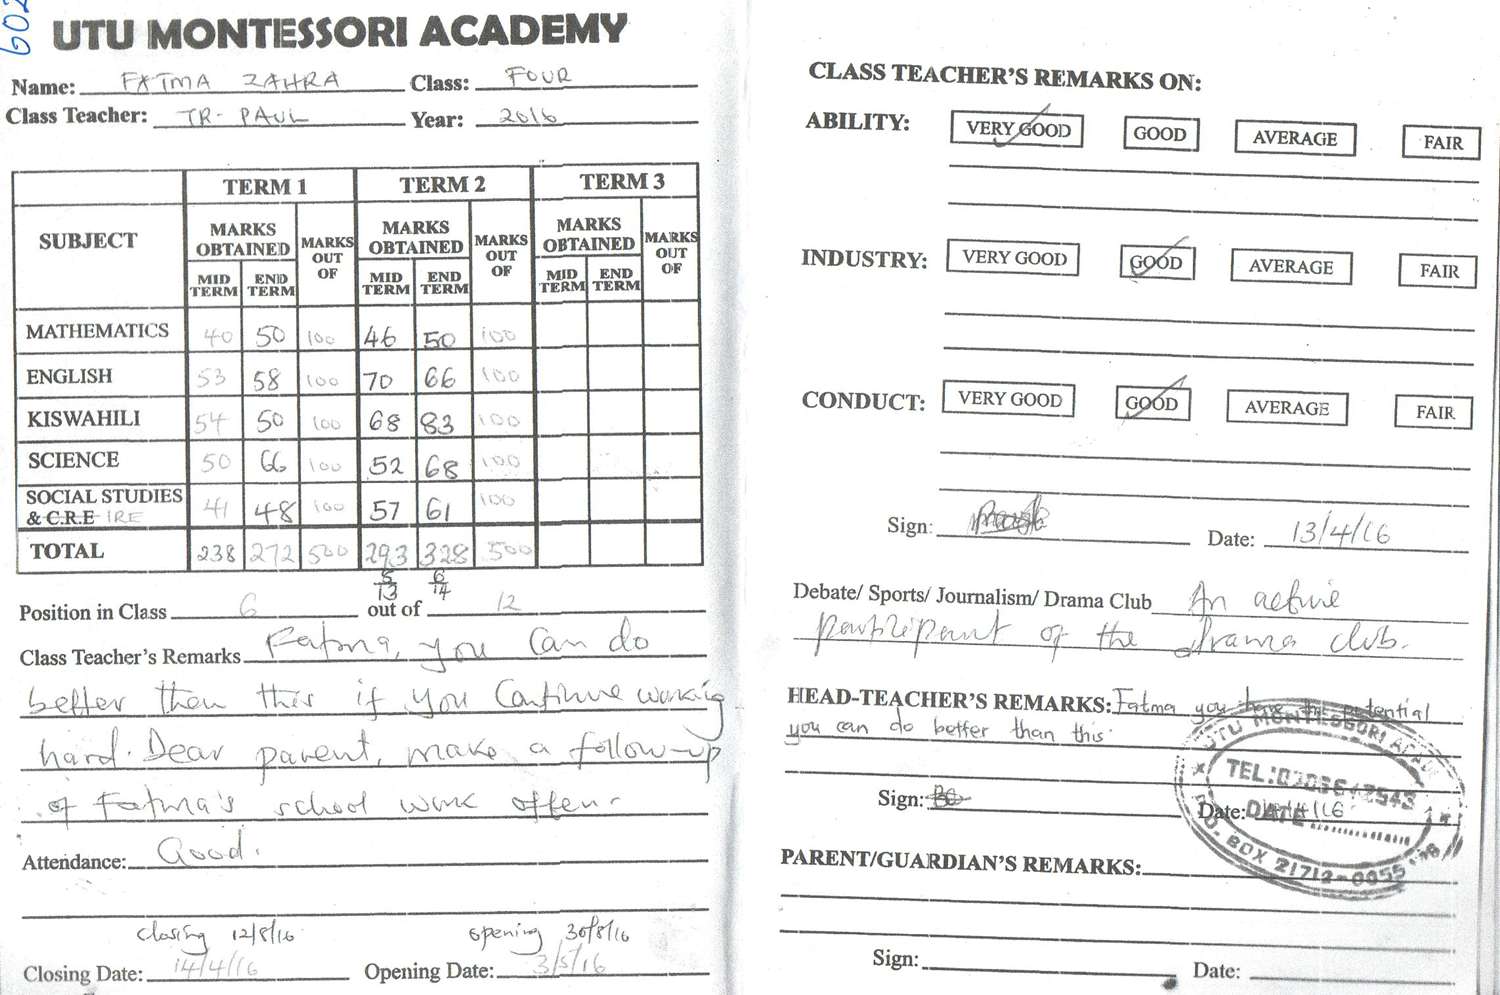 602
UTU MONTESSORI ACADEMY
Name: FATMA ZAHRA Class: FOUR
Class Teacher: TR- PAUL Year: 2016
SUBJECT TERM 1 TERM 2 TERM 3
MARKS OBTAINED MARKS OUT OF MARKS OBTAINED MARKS OUT OF MARKS OBTAINED MARKS OUT OF
MID TERM END TERM MID TERM END TERM MID TERM END TERM
MATHEMATICS 40 50 100 46 50 100
ENGLISH 53 58 100 70 66 100
KISWAHILI 54 50 100 68 83 100
SCIENCE 50 66 100 52 68 100
SOCIAL STUDIES
& C.R.E IRE 41 48 100 57 61 100
TOTAL 238 272 500 293 328 500
5/13 6/14
Position in Class 6 out of 12
Class Teacher's Remarks Fatma, you can do
better than this if you continue working
hard. Dear parent, make a follow-up
of Fatma's school work often.
Attendance: Good.
closing 12/8/16 opening 30/8/16
Closing Date: 14/4/16 Opening Date: 3/5/16
CLASS TEACHER'S REMARKS ON:
ABILITY: VERY GOOD GOOD AVERAGE FAIR
INDUSTRY: VERY GOOD GOOD AVERAGE FAIR
CONDUCT: VERY GOOD GOOD AVERAGE FAIR
Sign: Date: 13/4/16
Debate/ Sports/ Journalism/ Drama Club An active
participant of the drama club.
HEAD-TEACHER'S REMARKS: Fatma you have the potential
you can do better than this.
UTU MONTESSORI
TEL:
Sign: Date:
DATE
BOX 21712-
PARENT/GUARDIAN'S REMARKS:
Sign: Date: